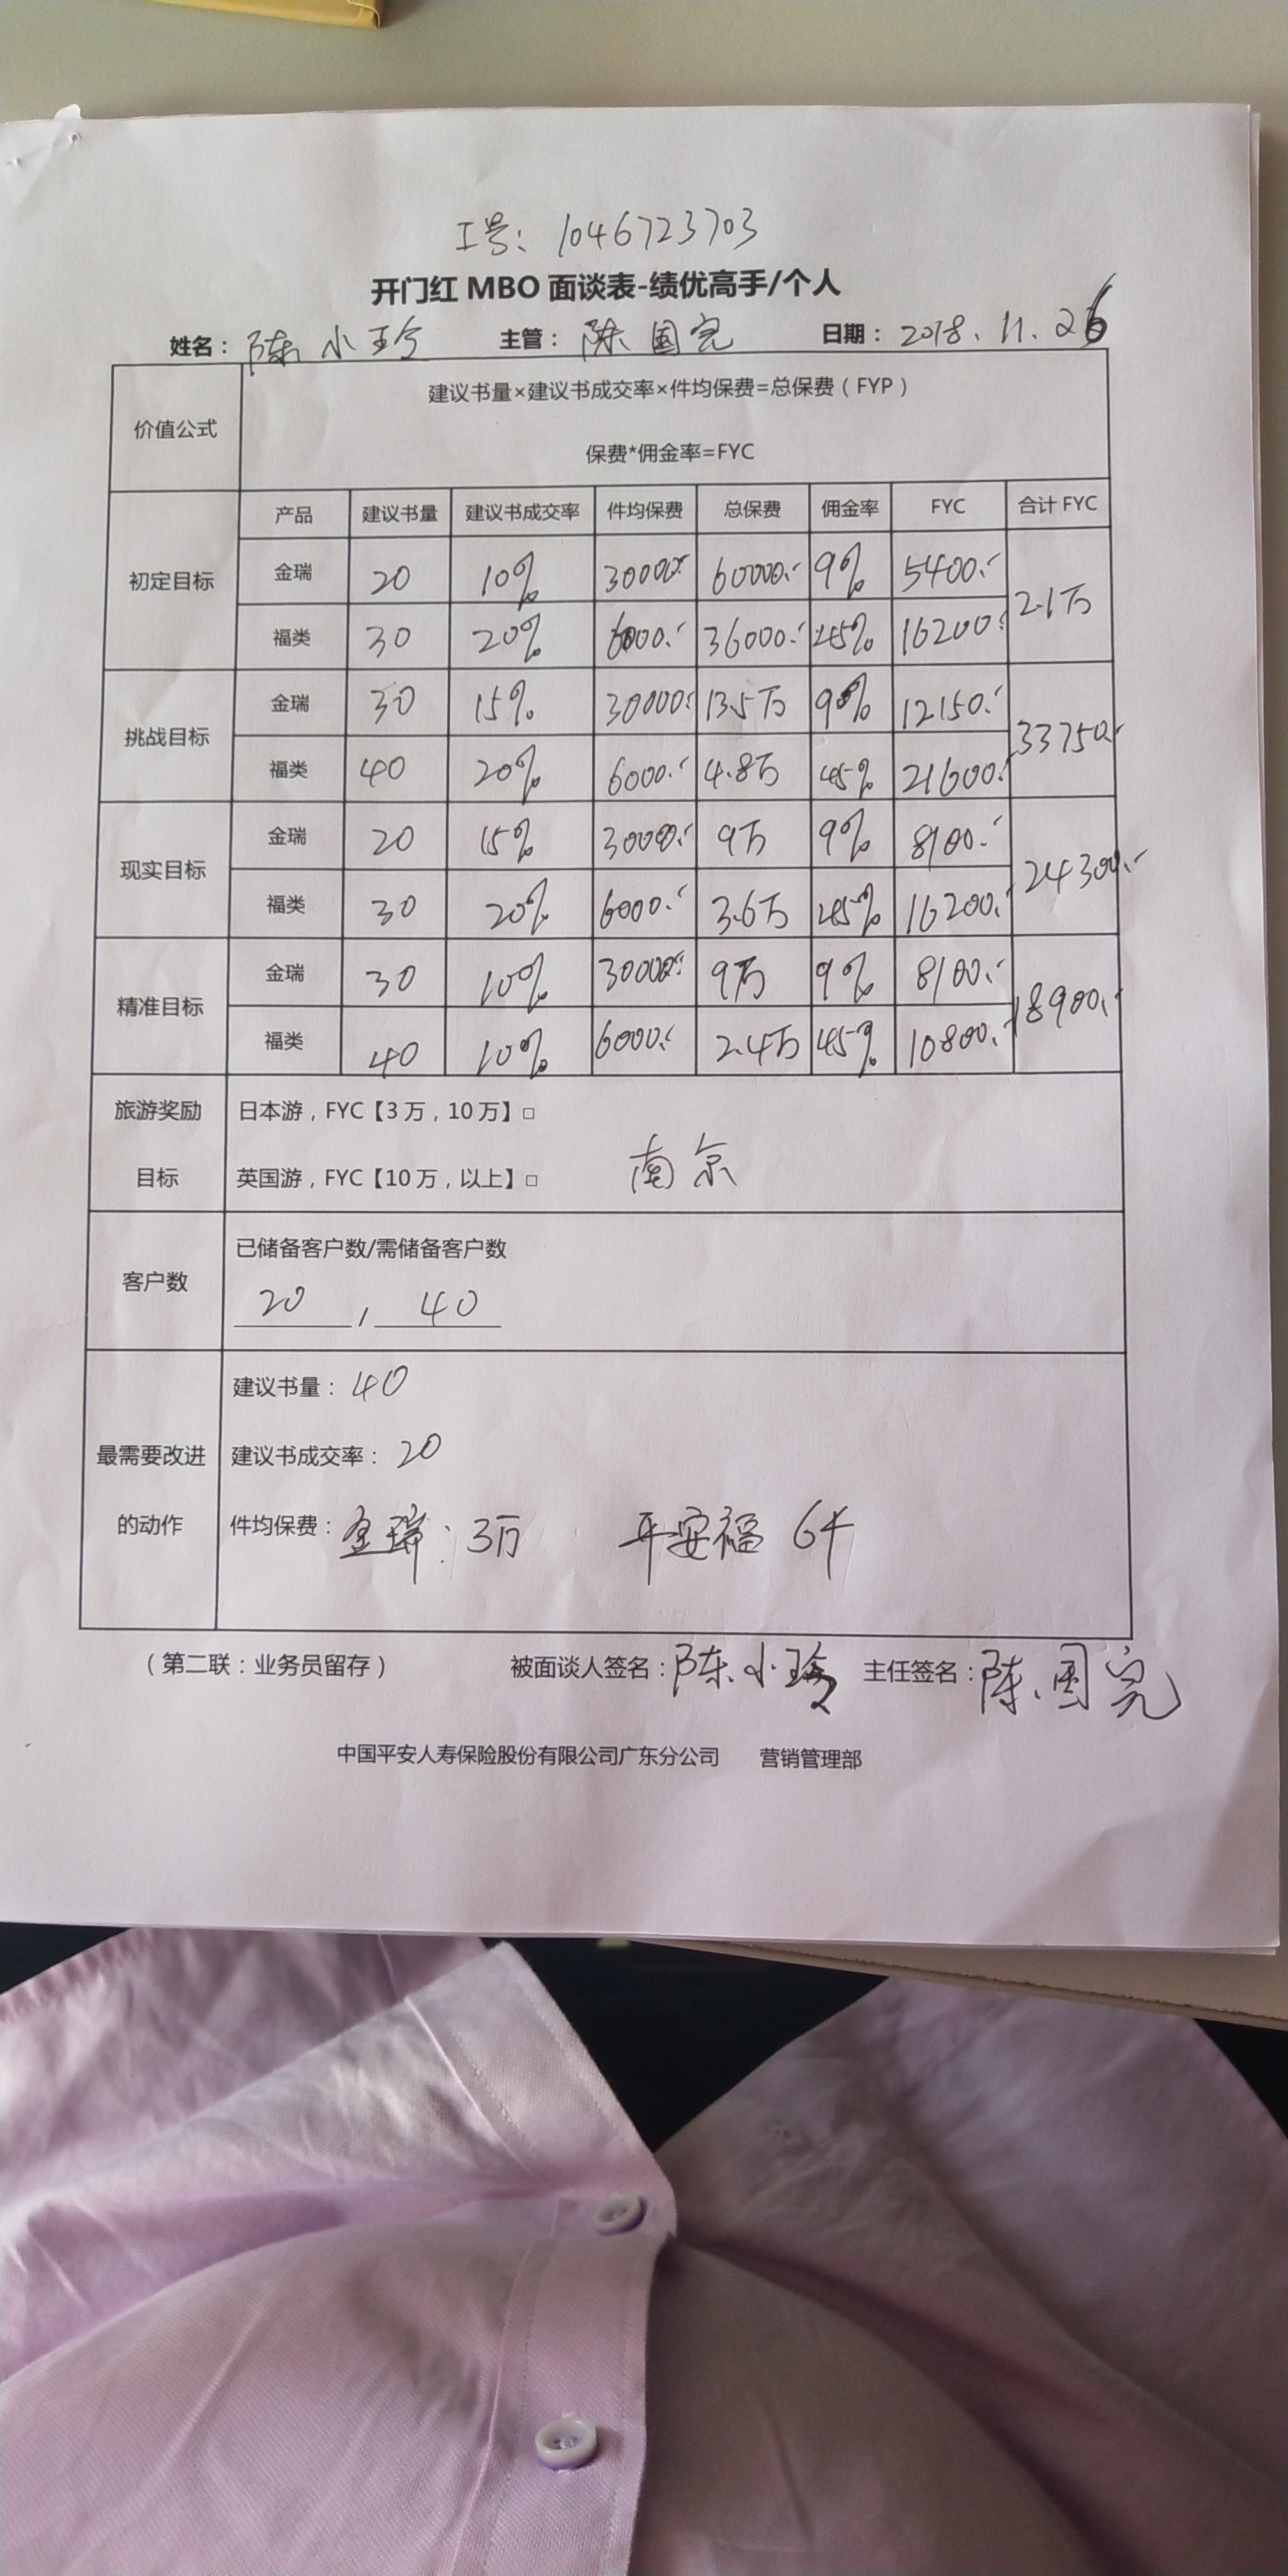 工号：1046723703
开门红 MBO 面谈表-绩优高手/个人
姓名：陈小玲 主管：陈国完 日期：2018.11.26
价值公式
建议书量×建议书成交率×件均保费=总保费（FYP）
保费*佣金率=FYC
产品 建议书量 建议书成交率 件均保费 总保费 佣金率 FYC 合计 FYC
初定目标
金瑞 20 10% 30000.- 60000.- 9% 5400.- 2.1万
福类 30 20% 6000.- 36000.- 45% 16200.-
挑战目标
金瑞 30 15% 30000.- 13.5万 9% 12150.- 33750.-
福类 40 20% 6000.- 4.8万 45% 21600.-
现实目标
金瑞 20 15% 30000.- 9万 9% 8100.- 24300.-
福类 30 20% 6000.- 3.6万 45% 16200.-
精准目标
金瑞 30 10% 30000.- 9万 9% 8100.- 18900.-
福类 40 10% 6000.- 2.4万 45% 10800.-
旅游奖励
目标
日本游，FYC【3万，10万】□
英国游，FYC【10万，以上】□ 南京
客户数
已储备客户数/需储备客户数
20 / 40
最需要改进
的动作
建议书量：40
建议书成交率：20
件均保费：金瑞：3万 平安福 6千
（第二联：业务员留存） 被面谈人签名：陈小玲 主任签名：陈国完
中国平安人寿保险股份有限公司广东分公司 营销管理部